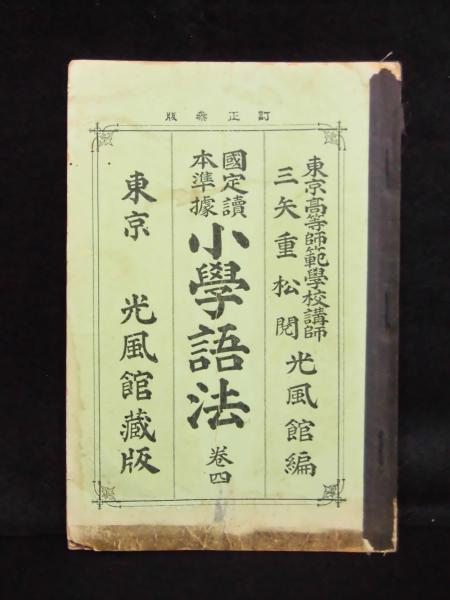 訂正叅版
東京高等師範學校講師
三矢重松閲
光風館編
國定讀
本準據
小學語法
卷四
東京
光風館藏版